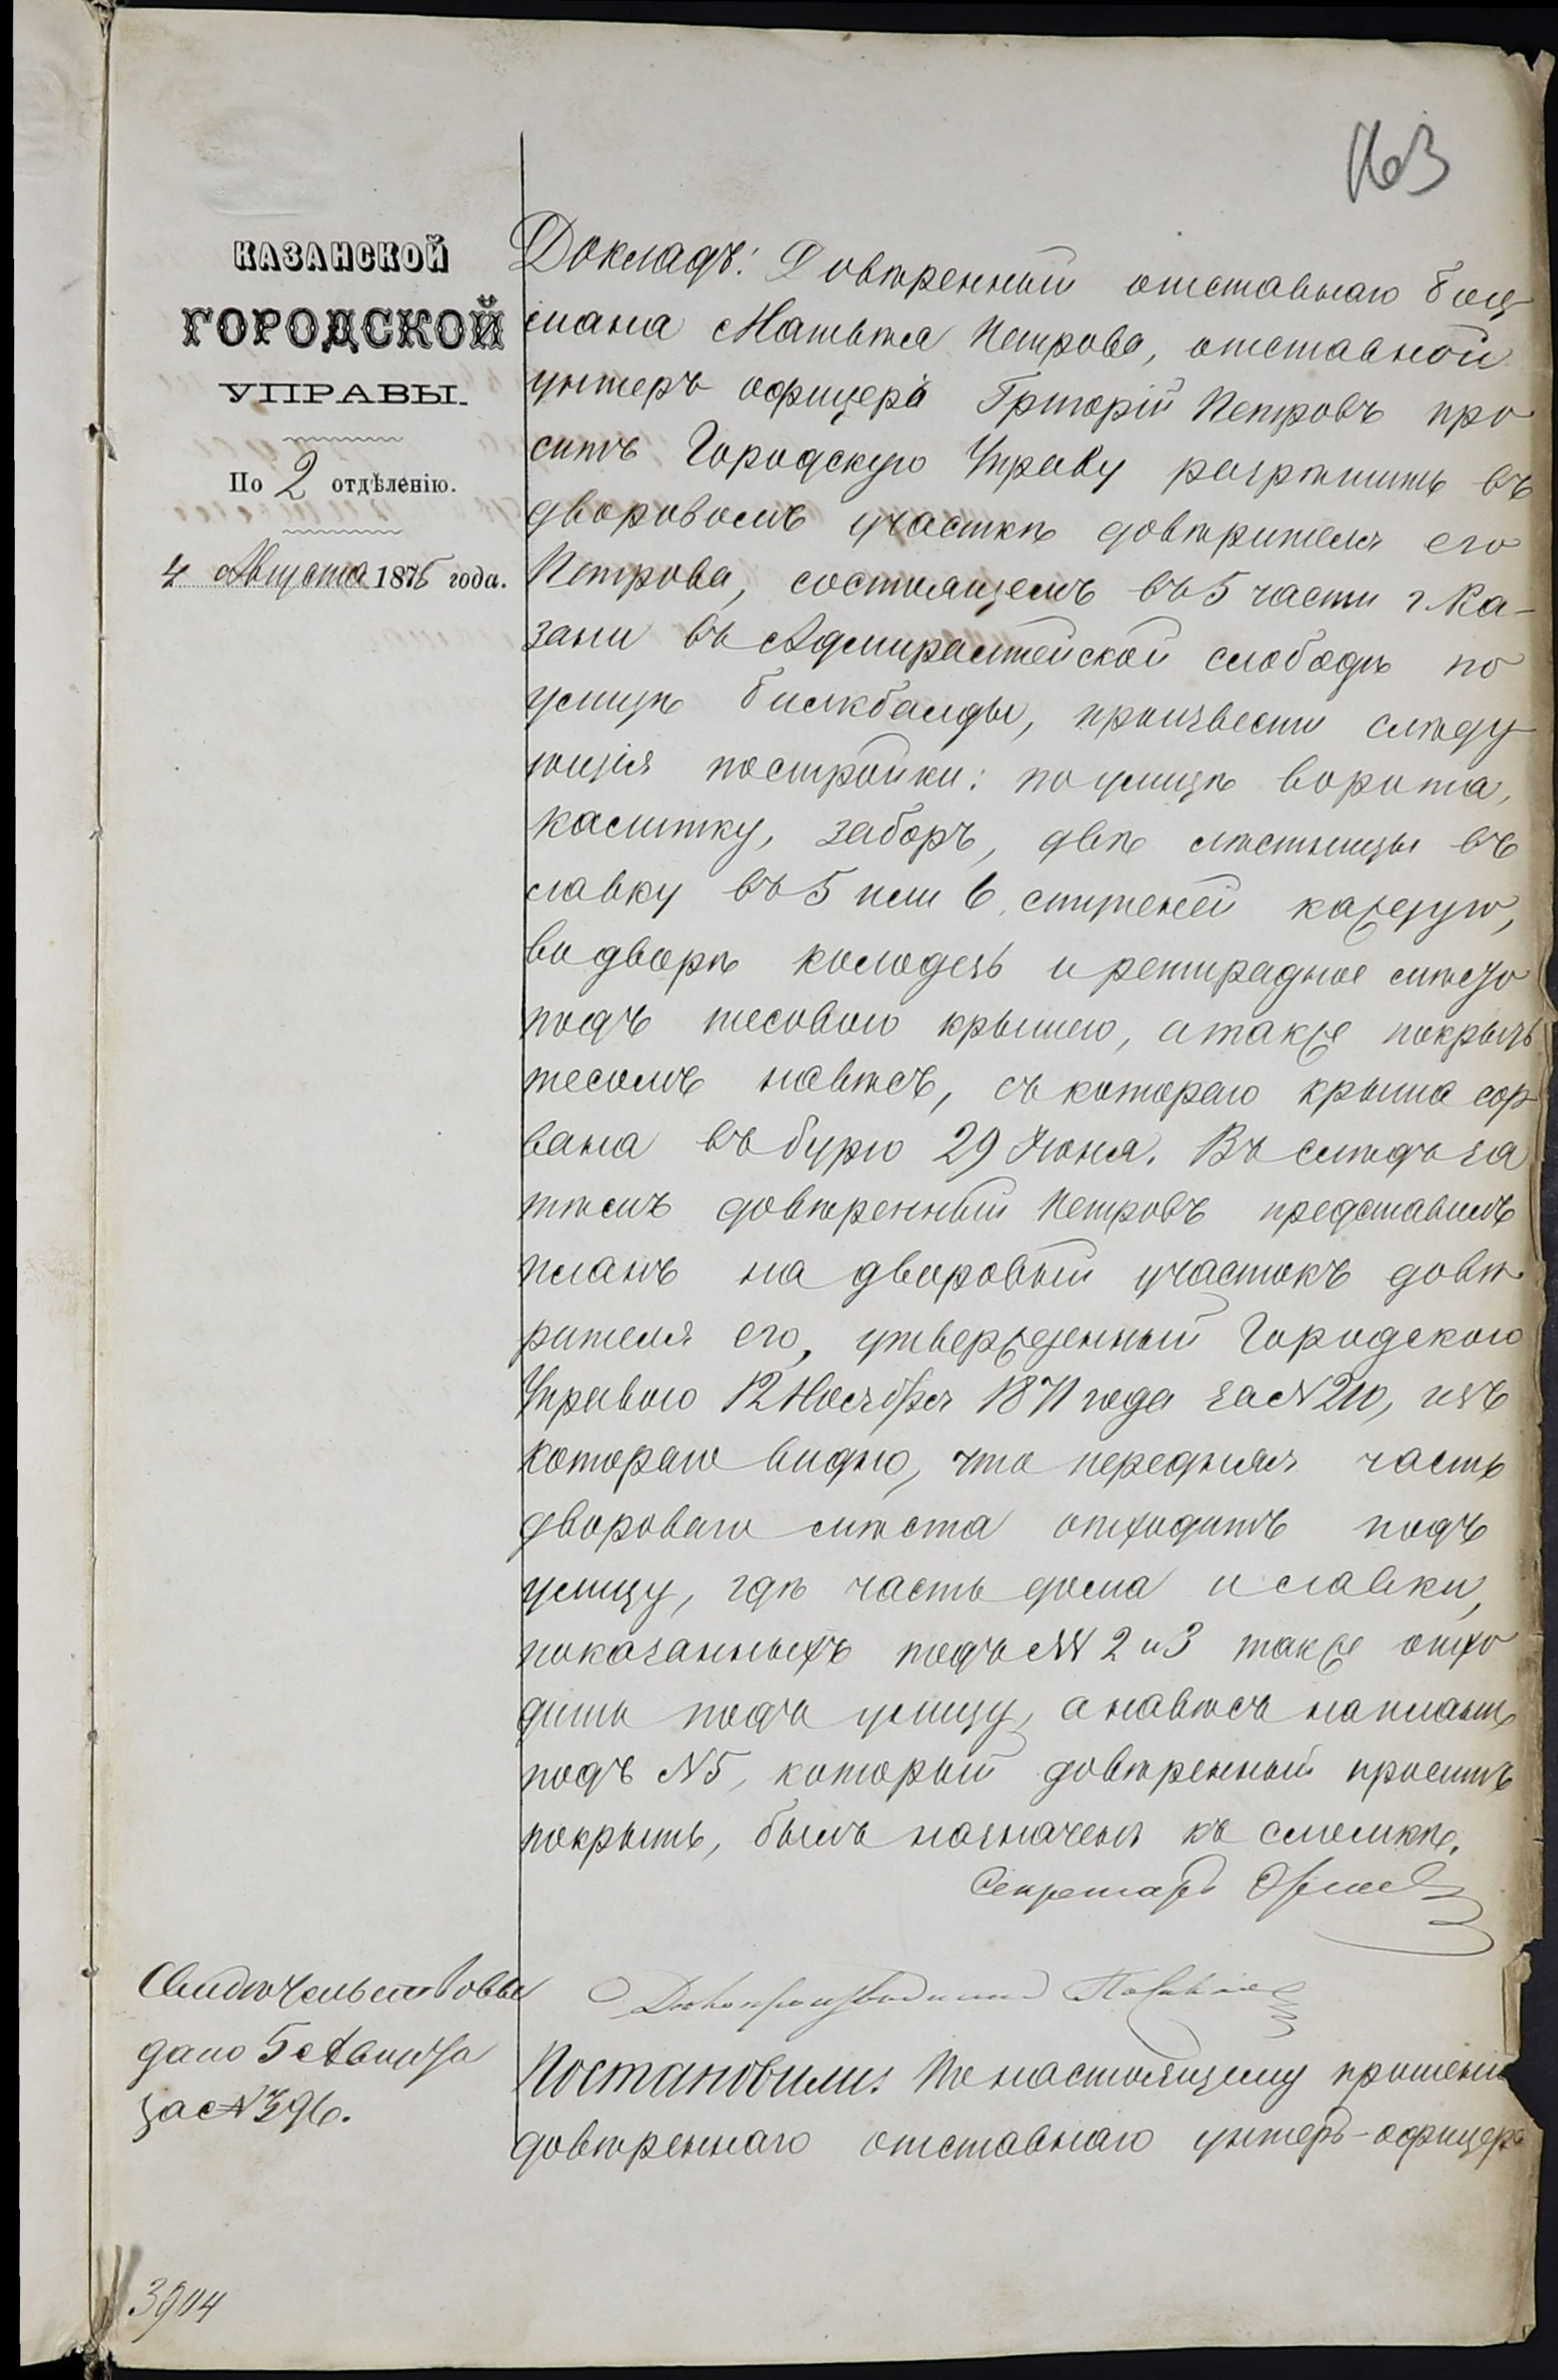 163
КАЗАНСКОЙ
ГОРОДСКОЙ
УПРАВЫ.
По 2 отдѣленію.
4 Августа 1876 года.
Докладъ: Довѣренный отставнаго боц
мана Матвѣя Петрова, отставной
унтеръ офицеръ Григорій Петровъ про
ситъ Городскую Управу разрѣшить въ
дворовомъ участкѣ довѣрителя его
Петрова, состоящемъ въ 5 части г. Ка-
зани въ Адмиралтейской слободѣ по
улицѣ бишбалды, произвести слѣду
ющія постройки: по улицѣ ворота,
калитку, заборъ, двѣ лѣстницы въ
лавку въ 5 или 6 ступеней каждую,
во дворѣ колодезь и ретирадное мѣсто
подъ тесовою крышею, а также покрыть
тесомъ навѣсъ, съ котораго крыша сор
вана въ бурю 29 Июня. Въ слѣдъ за
тѣмъ довѣренный Петровъ представилъ
планъ на дворовый участокъ довѣ
рителя его, утвержденный Городскою
Управою 12 Ноября 1871 года за №210, изъ
котораго видно, что передняя часть
двороваго мѣста отходитъ подъ
улицу, гдѣ часть дома и лавки,
показанныхъ подъ №№ 2 и 3 также отхо
дитъ подъ улицу, а навѣсъ на планѣ
подъ №5, который довѣренный проситъ
покрыть, былъ назначенъ къ сломкѣ.
Секретарь
Дѣлопроизводитель
Свидѣтельство вы
дано 5 Августа
за №
Постановили: По настоящему прошенію
довѣреннаго отставнаго унтеръ-офицера
3904